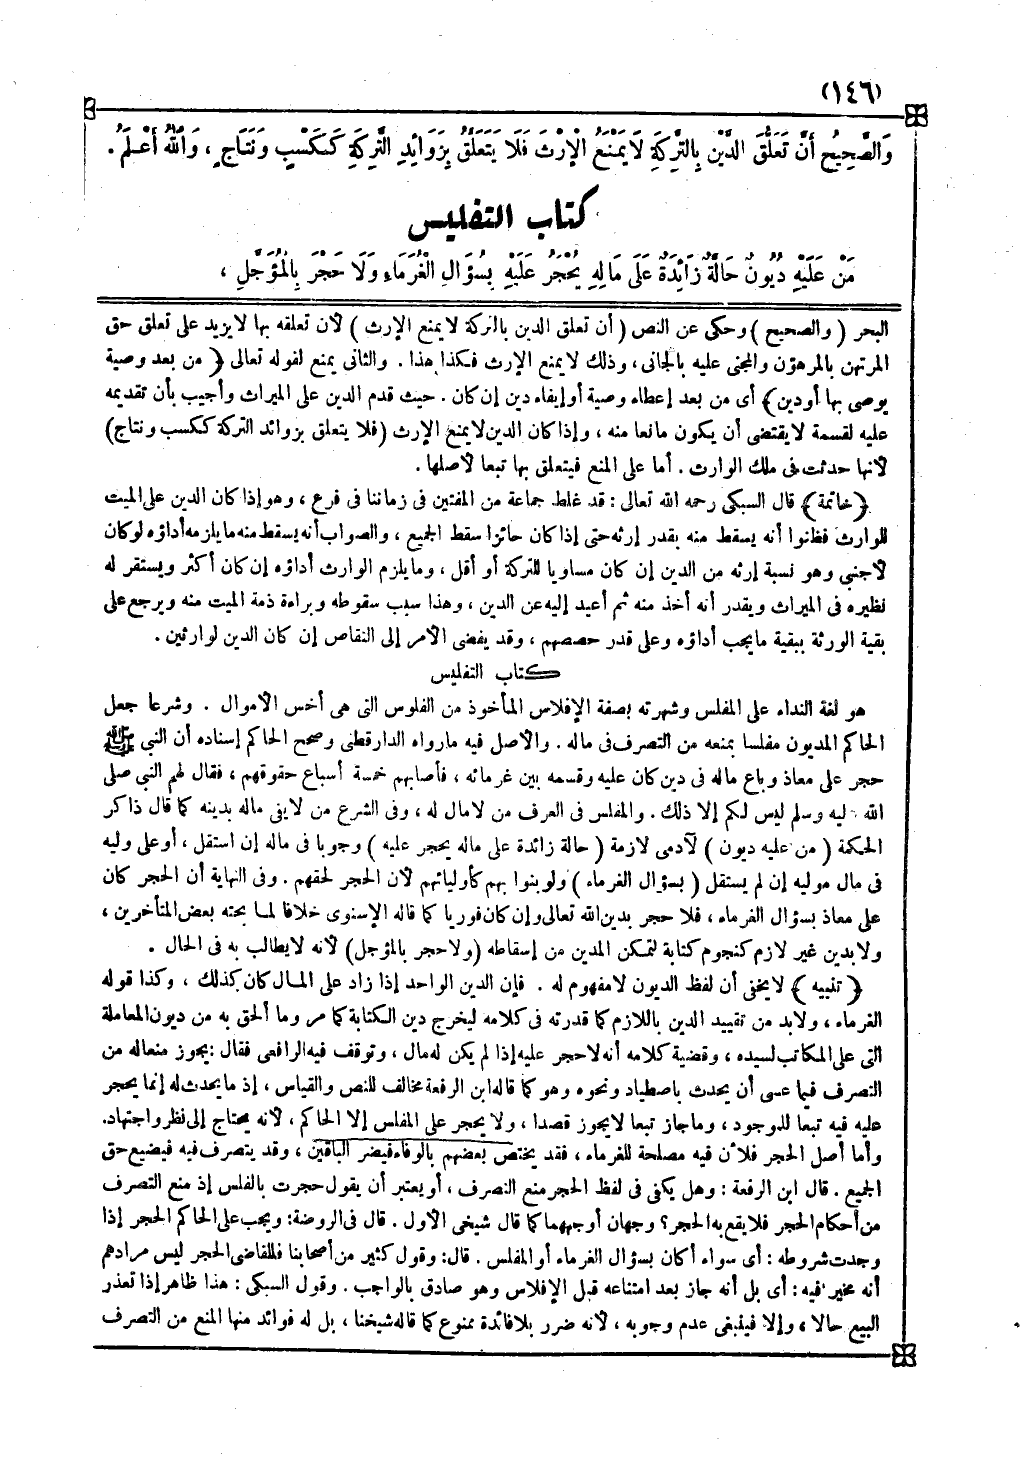 (١٤٦)
وَالصَّحِيحُ أَنَّ تَعَلُّقَ الدَّيْنِ بِالتَّرِكَةِ لَا يَمْنَعُ الْإِرْثَ فَلَا يَتَعَلَّقُ بِزَوَائِدِ التَّرِكَةِ كَكَسْبٍ وَنَتَاجٍ، وَاللهُ أَعْلَمُ.
كتاب التفليس
مَنْ عَلَيْهِ دُيُونٌ حَالَّةٌ زَائِدَةٌ عَلَى مَالِهِ يُحْجَرُ عَلَيْهِ بِسُؤَالِ الْغُرَمَاءِ وَلَا حَجْرَ بِالْمُؤَجَّلِ،
البحر (والصحيح) وحكى عن النص (أن تعلق الدين بالتركة لا يمنع الإرث) لأن تعلقه بها لا يزيد على تعلق حق
المرتهن بالمرهون والمجنى عليه بالجانى، وذلك لا يمنع الإرث فكذا هذا. والثانى يمنع لقوله تعالى ﴿من بعد وصية
يوصى بها أودين﴾ أى من بعد إعطاء وصية أو إيفاء دين إن كان. حيث قدم الدين على الميراث وأجيب بأن تقديمه
عليه لقسمة لا يقتضى أن يكون مانعا منه، وإذا كان الدين لا يمنع الإرث (فلا يتعلق بزوائد التركة ككسب ونتاج)
لأنها حدثت فى ملك الوارث. أما على المنع فيتعلق بها تبعا لأصلها.
﴿خاتمة﴾ قال السبكى رحمه الله تعالى: قد غلط جماعة من المفتين فى زماننا فى فرع، وهو إذا كان الدين على الميت
للوارث فظنوا أنه يسقط منه بقدر إرثه حتى إذا كان حائزا سقط الجميع، والصواب أنه يسقط منه ما يلزمه أداؤه لو كان
لأجنبى وهو نسبة إرثه من الدين إن كان مساويا للتركة أو أقل، وما يلزم الوارث أداؤه إن كان أكثر ويستقر له
نظيره فى الميراث ويقدر أنه أخذ منه ثم أعيد إليه عن الدين، وهذا سبب سقوطه وبراءة ذمة الميت منه ويرجع على
بقية الورثة ببقية ما يجب أداؤه وعلى قدر حصصهم، وقد يفضى الأمر إلى التقاص إن كان الدين لوارثين.
كتاب التفليس
هو لغة النداء على المفلس وشهرته بصفة الإفلاس المأخوذ من الفلوس التى هى أخس الأموال. وشرعا جعل
الحاكم المديون مفلسا بمنعه من التصرف فى ماله. والأصل فيه مارواه الدارقطنى وصحح الحاكم إسناده أن النبي ﷺ
حجر على معاذ وباع ماله فى دين كان عليه وقسمه بين غرمائه، فأصابهم خمسة أسباع حقوقهم، فقال لهم النبي صلى
الله عليه وسلم ليس لكم إلا ذلك. والمفلس فى العرف من لا مال له، وفى الشرع من لا يفى ماله بدينه كما قال ذاكر
الحكمة (من عليه ديون) لآدمى لازمة (حالة زائدة على ماله يحجر عليه) وجوبا فى ماله إن استقل، أو على وليه
فى مال موليه إن لم يستقل (بسؤال الغرماء) ولو بنوا بهم كأوليائهم لأن الحجر لحقهم. وفى النهاية أن الحجر كان
على معاذ بسؤال الغرماء، فلا حجر بدين الله تعالى وإن كان فوريا كما قاله الإسنوى خلافا لما بحثه بعض المتأخرين،
ولا بدين غير لازم كنجوم كتابة لتمكن المدين من إسقاطه (ولا حجر بالمؤجل) لأنه لا يطالب به فى الحال.
﴿تنبيه﴾ لا يخفى أن لفظ الديون لا مفهوم له. فإن الدين الواحد إذا زاد على المال كان كذلك، وكذا قوله
الغرماء، ولا بد من تقييد الدين باللازم كما قدرته فى كلامه ليخرج دين الكتابة كما مر وما ألحق به من ديون المعاملة
التى على المكاتب لسيده، وقضية كلامه أنه لا حجر عليه إذا لم يكن له مال، وتوقف فيه الرافعى فقال: يجوز منعا له من
التصرف فيما عسى أن يحدث باصطياد ونحوه وهو كما قاله ابن الرفعة مخالف للنص والقياس، إذ ما يحدث له إنما يحجر
عليه فيه تبعا للوجود، وماجاز تبعا لا يجوز قصدا، ولا يحجر على المفلس إلا الحاكم، لأنه يحتاج إلى نظر واجتهاد.
وأما أصل الحجر فلأن فيه مصلحة للغرماء، فقد يختص بعضهم بالوفاء فيضر الباقين، وقد يتصرف فيه فيضيع حق
الجميع. قال ابن الرفعة: وهل يكفى فى لفظ الحجر منع التصرف، أو يعتبر أن يقول حجرت بالفلس إذ منع التصرف
من أحكام الحجر فلا يقع به الحجر؟ وجهان أوجههما كما قال شيخى الأول. قال فى الروضة: ويجب على الحاكم الحجر إذا
وجدت شروطه: أى سواء أكان بسؤال الغرماء أو المفلس. قال: وقول كثير من أصحابنا فللقاضى الحجر ليس مرادهم
أنه مخير فيه: أى بل أنه جاز بعد امتناعه قبل الإفلاس وهو صادق بالواجب. وقول السبكى: هذا ظاهر إذا تعذر
البيع حالا، وإلا فينبغى عدم وجوبه، لأنه ضرر بلا فائدة ممنوع كما قاله شيخنا، بل له فوائد منها المنع من التصرف